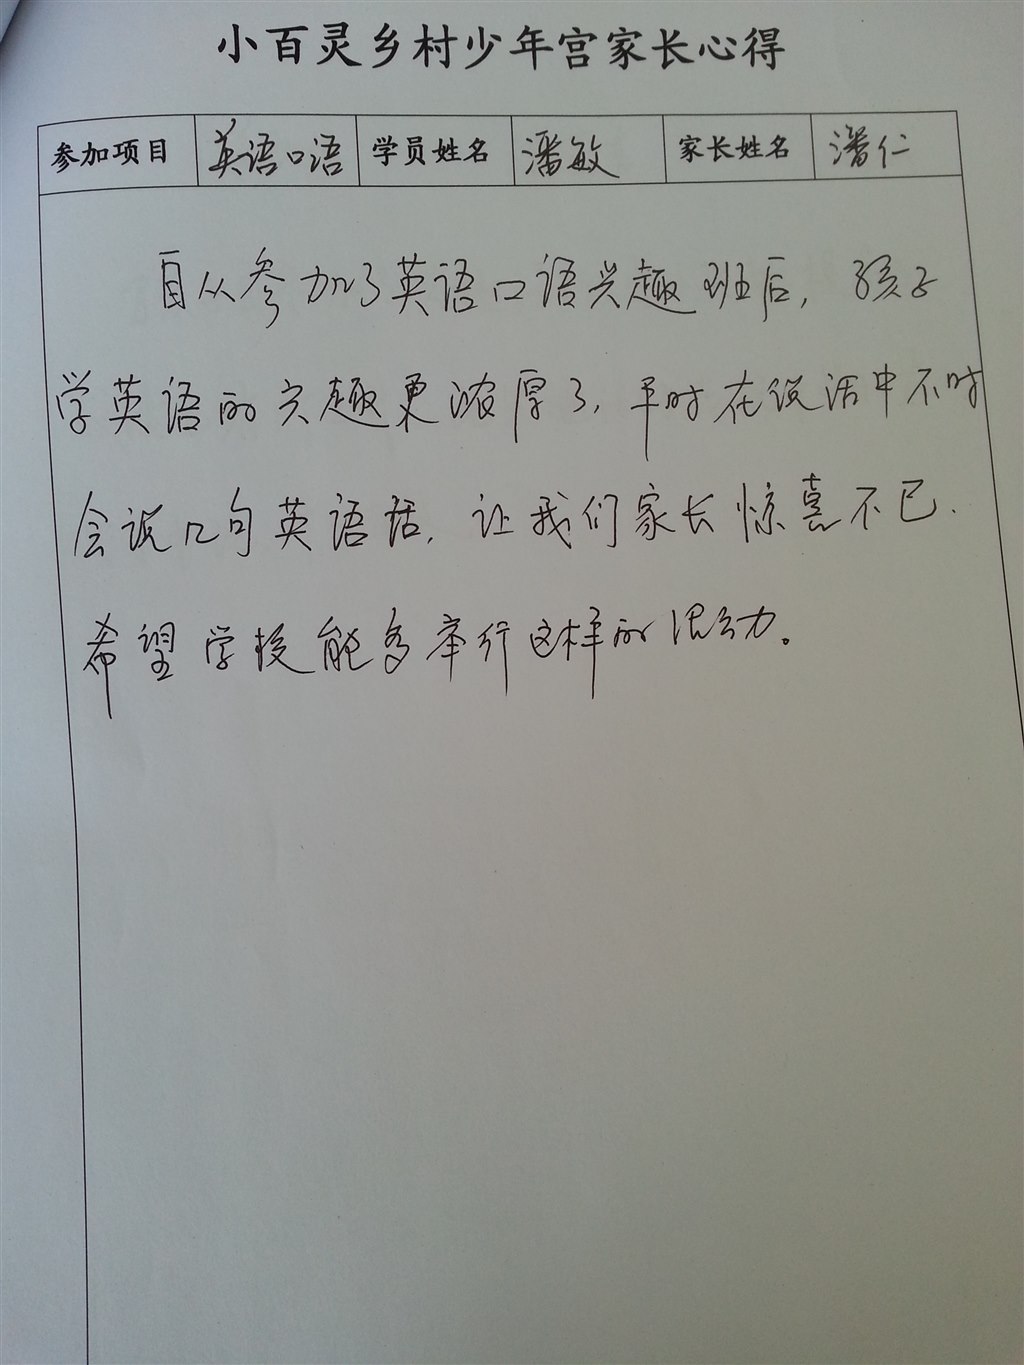 小百灵乡村少年宫家长心得
参加项目 英语口语 学员姓名 潘敏 家长姓名 潘仁
自从参加了英语口语兴趣班后，孩子
学英语的兴趣更浓厚了，平时在说话中不时
会说几句英语话，让我们家长惊喜不已.
希望学校能多举行这样的活动。